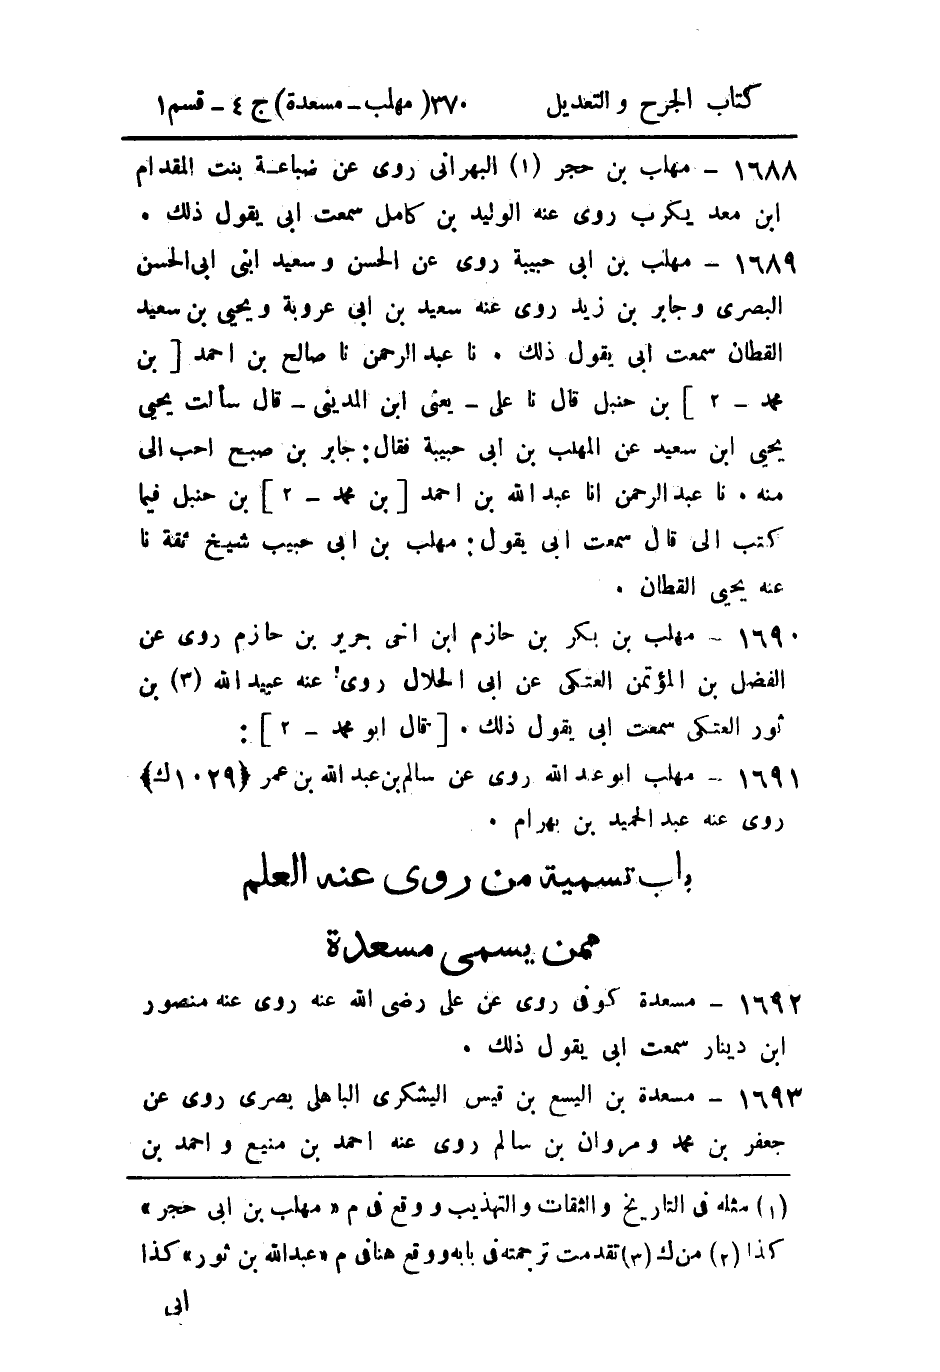 كتاب الجرح والتعديل ٣٧٠ ( مهلب ـ مسعدة ) ج ٤ ـ قسم ١
١٦٨٨ ـ مهلب بن حجر (١) البهرانى روى عن ضباعة بنت المقدام
ابن معد يكرب روى عنه الوليد بن كامل سمعت ابى يقول ذلك .
١٦٨٩ ـ مهلب بن ابى حبيبة روى عن الحسن وسعيد ابنى ابى الحسن
البصرى وجابر بن زيد روى عنه سعيد بن ابى عروبة ويحيى بن سعيد
القطان سمعت ابى يقول ذلك . نا عبد الرحمن نا صالح بن احمد [ بن
محمد ـ ٢ ] بن حنبل قال نا على ـ يعنى ابن المدينى ـ قال سألت يحيى
يحيى ابن سعيد عن المهلب بن ابى حبيبة فقال : جابر بن صبح احب الى
منه . نا عبد الرحمن انا عبد الله بن احمد [ بن محمد ـ ٢ ] بن حنبل فيما
كتب الى قال سمعت ابى يقول : مهلب بن ابى حبيب شيخ ثقة نا
عنه يحيى القطان .
١٦٩٠ ـ مهلب بن بكر بن حازم ابن اخى جرير بن حازم روى عن
الفضل بن المؤتمن العتكى عن ابى الحلال روى عنه عبيد الله (٣) بن
ثور العتكى سمعت ابى يقول ذلك . [ قال ابو محمد ـ ٢ ] :
١٦٩١ ـ مهلب ابو عبد الله روى عن سالم بن عبد الله بن عمر ﴿١٠٢٩ك﴾
روى عنه عبد الحميد بن بهرام .
باب تسمية من روى عنه العلم
ممن يسمى مسعدة
١٦٩٢ ـ مسعدة كوفى روى عن على رضى الله عنه روى عنه منصور
ابن دينار سمعت ابى يقول ذلك .
١٦٩٣ ـ مسعدة بن اليسع بن قيس اليشكرى الباهلى بصرى روى عن
جعفر بن محمد ومروان بن سالم روى عنه احمد بن منيع واحمد بن
(١) مثله فى التاريخ والثقات والتهذيب ووقع فى م « مهلب بن ابى حجر »
كذا (٢) من ك (٣) تقدمت ترجمته فى بابه ووقع هنا فى م « عبد الله بن ثور » كذا
ابى